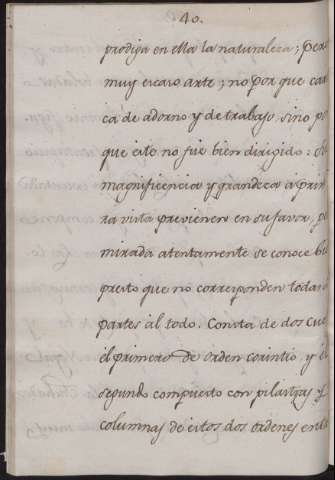 40.
prodiga en ella la naturaleza; pero
muy escaso arte; no por que carez
ca de adorno y de trabajo, sino por
que este no fue bien dirigido: Su
magnificencia y grandeza a prime
ra vista previenen en su favor, pero
mirada atentamente se conoce bien
presto que no corresponden todas las
partes al todo. Consta de dos cuerpos
el primero de orden corintio, y el
segundo compuesto con pilastras y
columnas de estos dos ordenes en